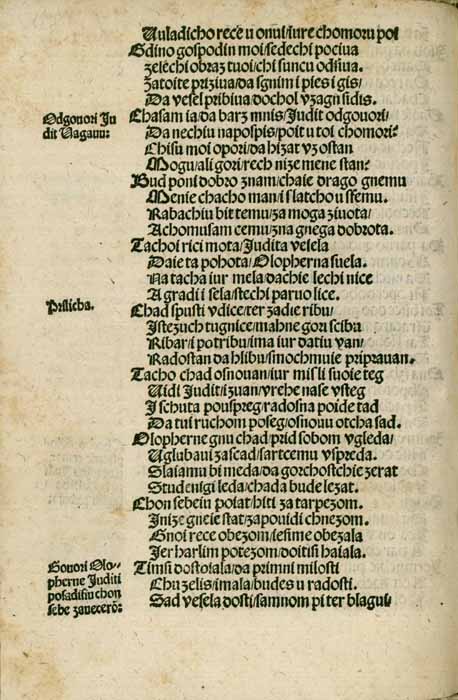 Uuladicho rece u onui/iure chomoru poi
Gdino gospodin moi/sedechi pociua
zelechi obraz tuoi/chi suncu odsiua.
Zatoite priziua/da sgnim i pies i gis/
Da vesel pribiua/dochol vzagn sidis.
Odgouori Ju
dit Uagauu:
Chasam ia/da barz mnis/Judit odgouori/
Da nechiu napospis/poit u toi chomori?
Chisu moi opori/da hizat vz ostan
Mogu/ali gori/rech nize mene stan?
Bud poni dobro znam/chaie drago gnemu
Menie chacho man/i slatcho u ssemu.
Rabachiu bit temu/za moga ziuota/
Achomusam cemu/zna gnega dobrota.
Tachoi rici mota/Judita vesela
Daie ta pohota/Olopherna suela.
Na tacha iur mela/dachie lechi nice
A gradi i sela/stechi paruo lice.
Prilicha.
Chad spusti vdice/ter zadie ribu/
Istezuch tugnice/mahne gori scibu
Ribar/i potribu/ima iur datiu van/
Radostan da hlibu/smochmuie priprauan.
Tacho chad osnouan/iur misli suoie teg
Uidi Judit/izuan/vrehe nase vsteg
Ischuta pouspreg/radosna poide tad
Da tui ruchom poseg/osnouu otcha sad.
Olopherne gnu chad/prid sobom vgleda/
Uglubaui zascad/sartcemu vspreda.
Slaiamu bi meda/da gorchostchie zerat
Studenigi leda/chada bude lezat.
Chon sebeiu poiat/hiti za tarpezom.
Inize gneie stat/zapouidi chnezom.
Gnoi rece obezom/iesime obezala
Jer harlim potezom/doitisi haiala.
Gouori Olo-
pherne Juditi
posadisiu chon
sebe zaueceroͫ:
Timsi dostoiala/da primni milosti
Chu zelis/imala/budes u radosti.
Sad vesela dosti/samnom pi ter blagui/